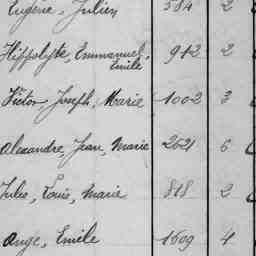 Eugène, Julien 584 2
Hippolyte, Emmanuel, 912 2
Emile
Victor Joseph, Marie 1002 3
Alexandre, Jean, Marie 2621 6
Jules, Louis, Marie 818 2
Ange, Emile 1609 4